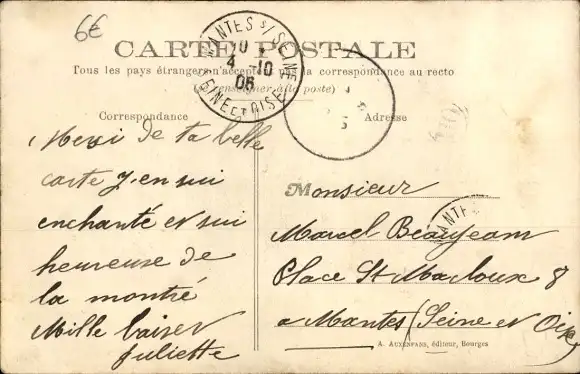 6€
CARTE POSTALE
Tous les pays étrangers n'acceptent pas la correspondance au recto
(Se renseigner à la poste)
MANTES S/ SEINE
4 -10
05
SINE ET OISE
Correspondance
Adresse
Merci de ta belle
carte J'en sui
enchanté et sui
heureuse de
la montré
Mille baiser
Juliette
Monsieur
MANTES
Marcel Beaujean
Place St Macloux 8
a Mantes (Seine et Oise)
A. AUXENFANS, éditeur, Bourges